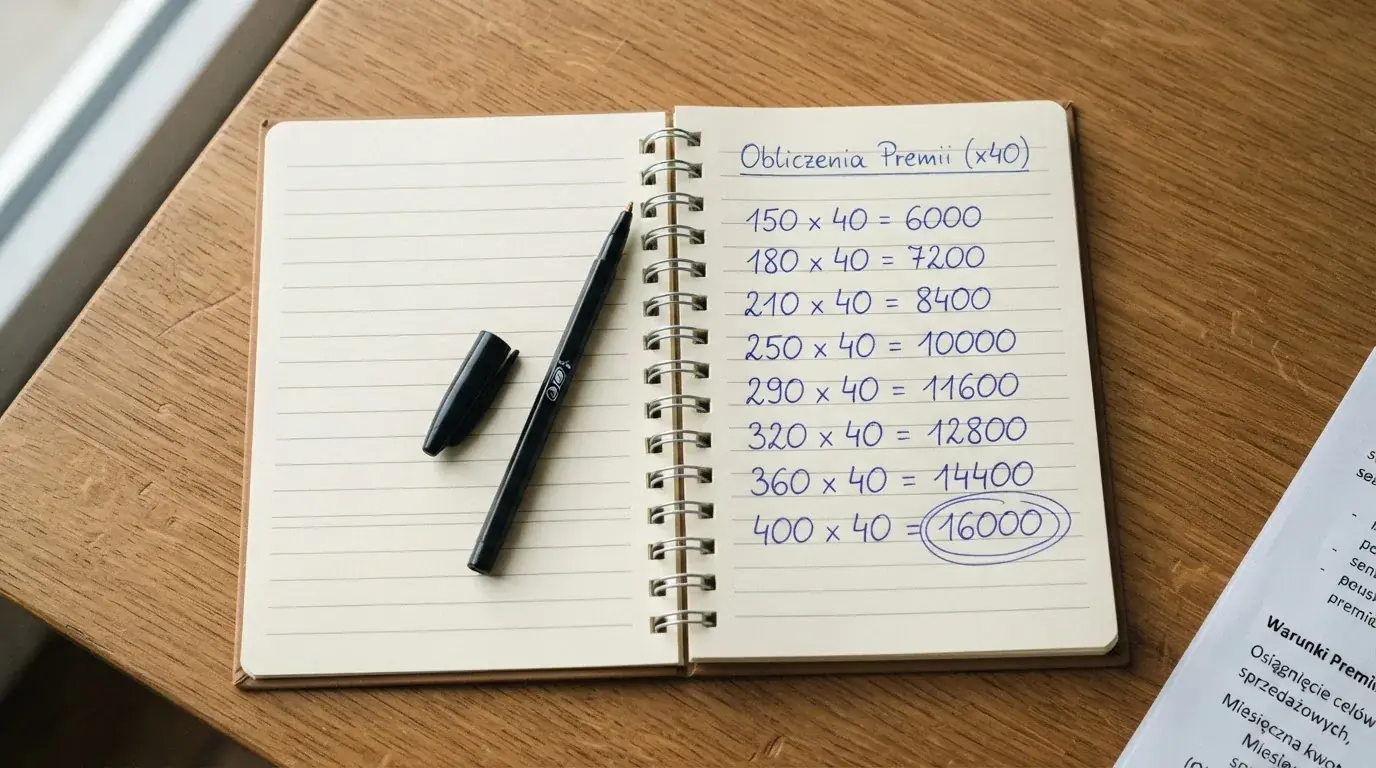 Obliczenia Premii (x40)
150 x 40 = 6000
180 x 40 = 7200
210 x 40 = 8400
250 x 40 = 10000
290 x 40 = 11600
320 x 40 = 12800
360 x 40 = 14400
400 x 40 = 16000
Warunki Premii
Osiągnięcie celów
sprzedażowych,
Miesięczna